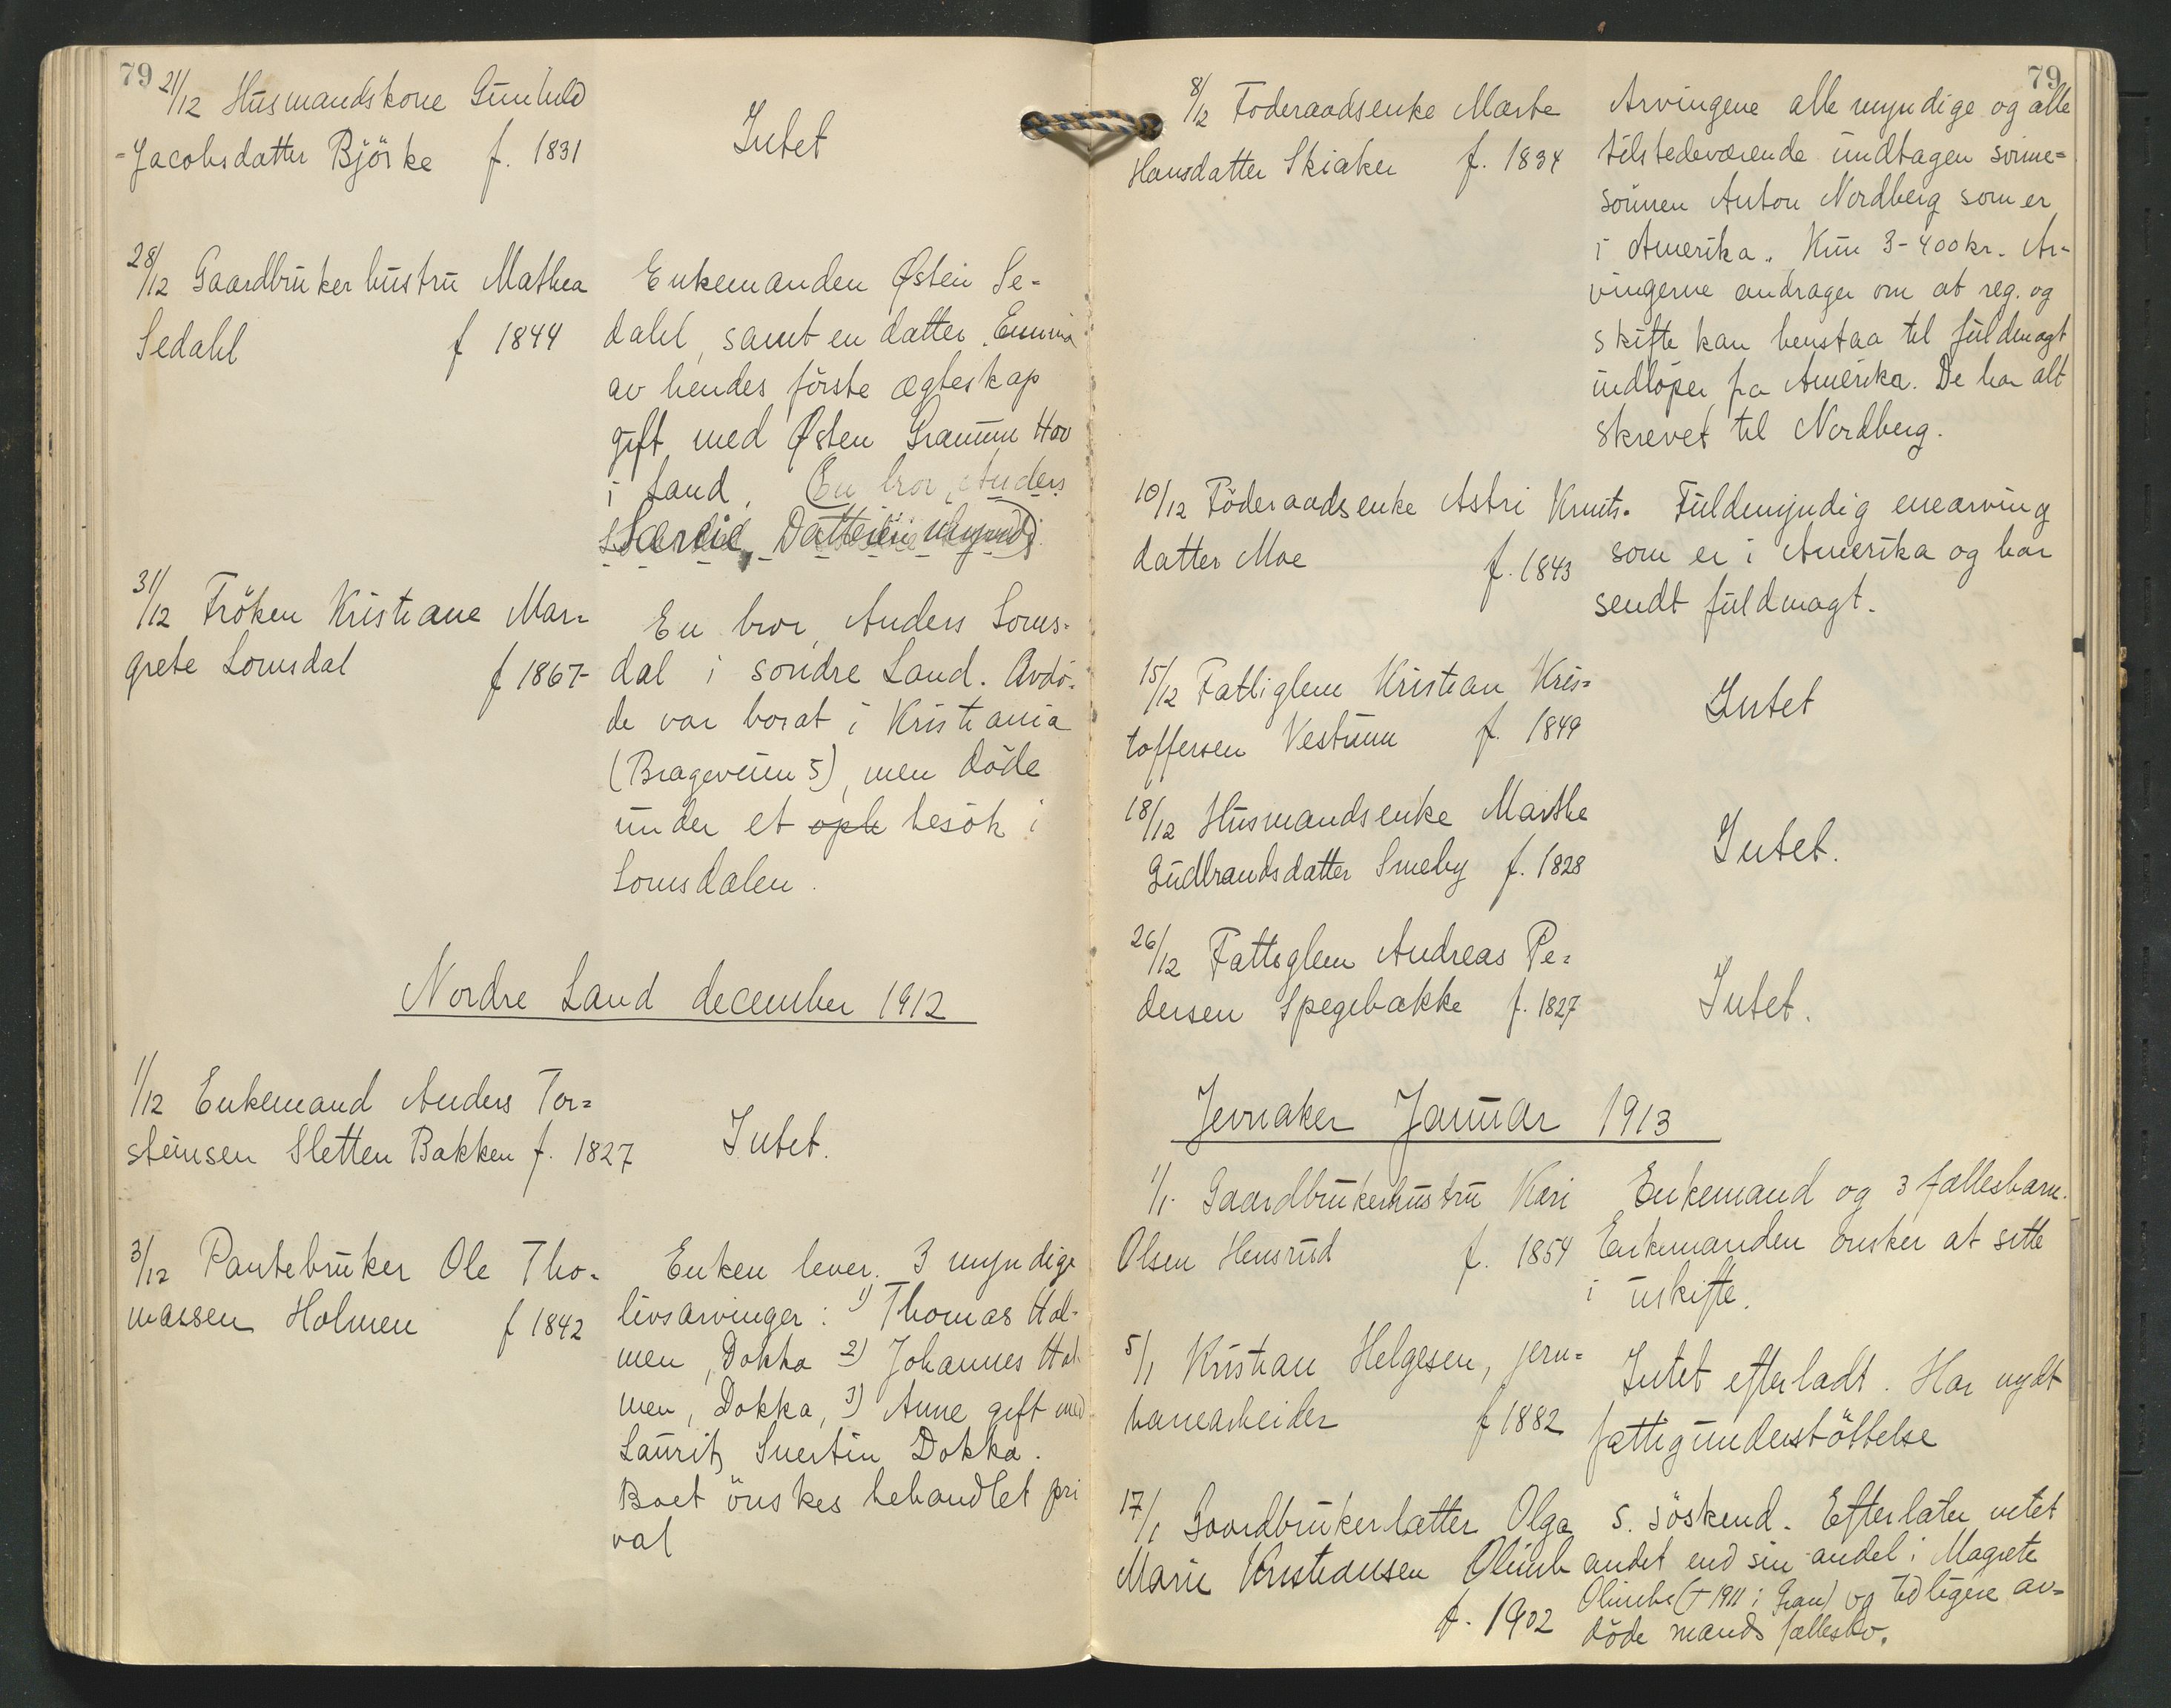 79
21/12 Husmandskone Gunhild
Jacobsdatter Björke f. 1831
Intet
28/12 Gaardbruker hustru Mathea
Sedahl f 1844
Enkemanden Østen Se-
dahl, samt en datter Emma
av hendes förste ægteskap
gift med Østen Hov
i Land. En bror, Anders
31/12 Fröken Kristiane Mar-
grete Lomsdal f 1867
En bror, Anders Loms-
dal i söndre Land. Avdö-
de var bosat i Kristiania
(Brageveien 5), men döde
under et oph besök i
Lomsdalen.
Nordre Land december 1912
1/12 Enkemand Anders Tor-
steinsen Sletten Bakken f. 1827
Intet.
3/12 Pantebruker Ole Tho-
massen Holmen f 1842
Enken lever. 3 myndige
livsarvinger: 1) Thomas Hol-
men, Dokka 2) Johannes Hol-
men, Dokka, 3) Anne gift med
Laurits Dokka.
Boet önskes behandlet pri
vat
79
8/12 Föderaadsenke Marte
Hansdatter Skiaker f. 1834
Arvingene alle myndige og alle
tilstedeværende undtagen
sönnen Anton Nordberg som er
i Amerika. Kun 3-400 kr. Ar-
vingerne andrager om at reg. og
skifte kan henstaa til fuldmagt
indlöper fra Amerika. De har alt
skrevet til Nordberg.
10/12 Föderaadsenke Astri Knuts-
datter Moe f. 1843
Fuldmyndig enearving
som er i Amerika og har
sendt fuldmagt.
15/12 Fattiglem Kristian Kris-
toffersen Vestrum f. 1849
Intet
18/12 Husmandsenke Marthe
Gudbrandsdatter Smeby f. 1828
Intet.
26/12 Fattiglem Andreas Pe-
dersen Spegebakke f. 1827
Intet.
Jevnaker Januar 1913
1/1. Gaardbrukerhustru Kari
Olsen Hensrud f. 1854
Enkemand og 3 fællesbarn.
Enkemanden önsker at sitte
i uskifte.
5/1 Kristian Helgesen, jern-
banearbeider f 1882
Intet efterladt. Har nydt
fattigunderstöttelse
17/1 Gaardbrukerdatter Olga
Marie Kristiansen Olimb
f. 1902
s. söskend. Efterlater intet
andet end sin andel i Magrete
Olimbs († 1911 i Gran) og tidligere av-
döde mands fællesbo.